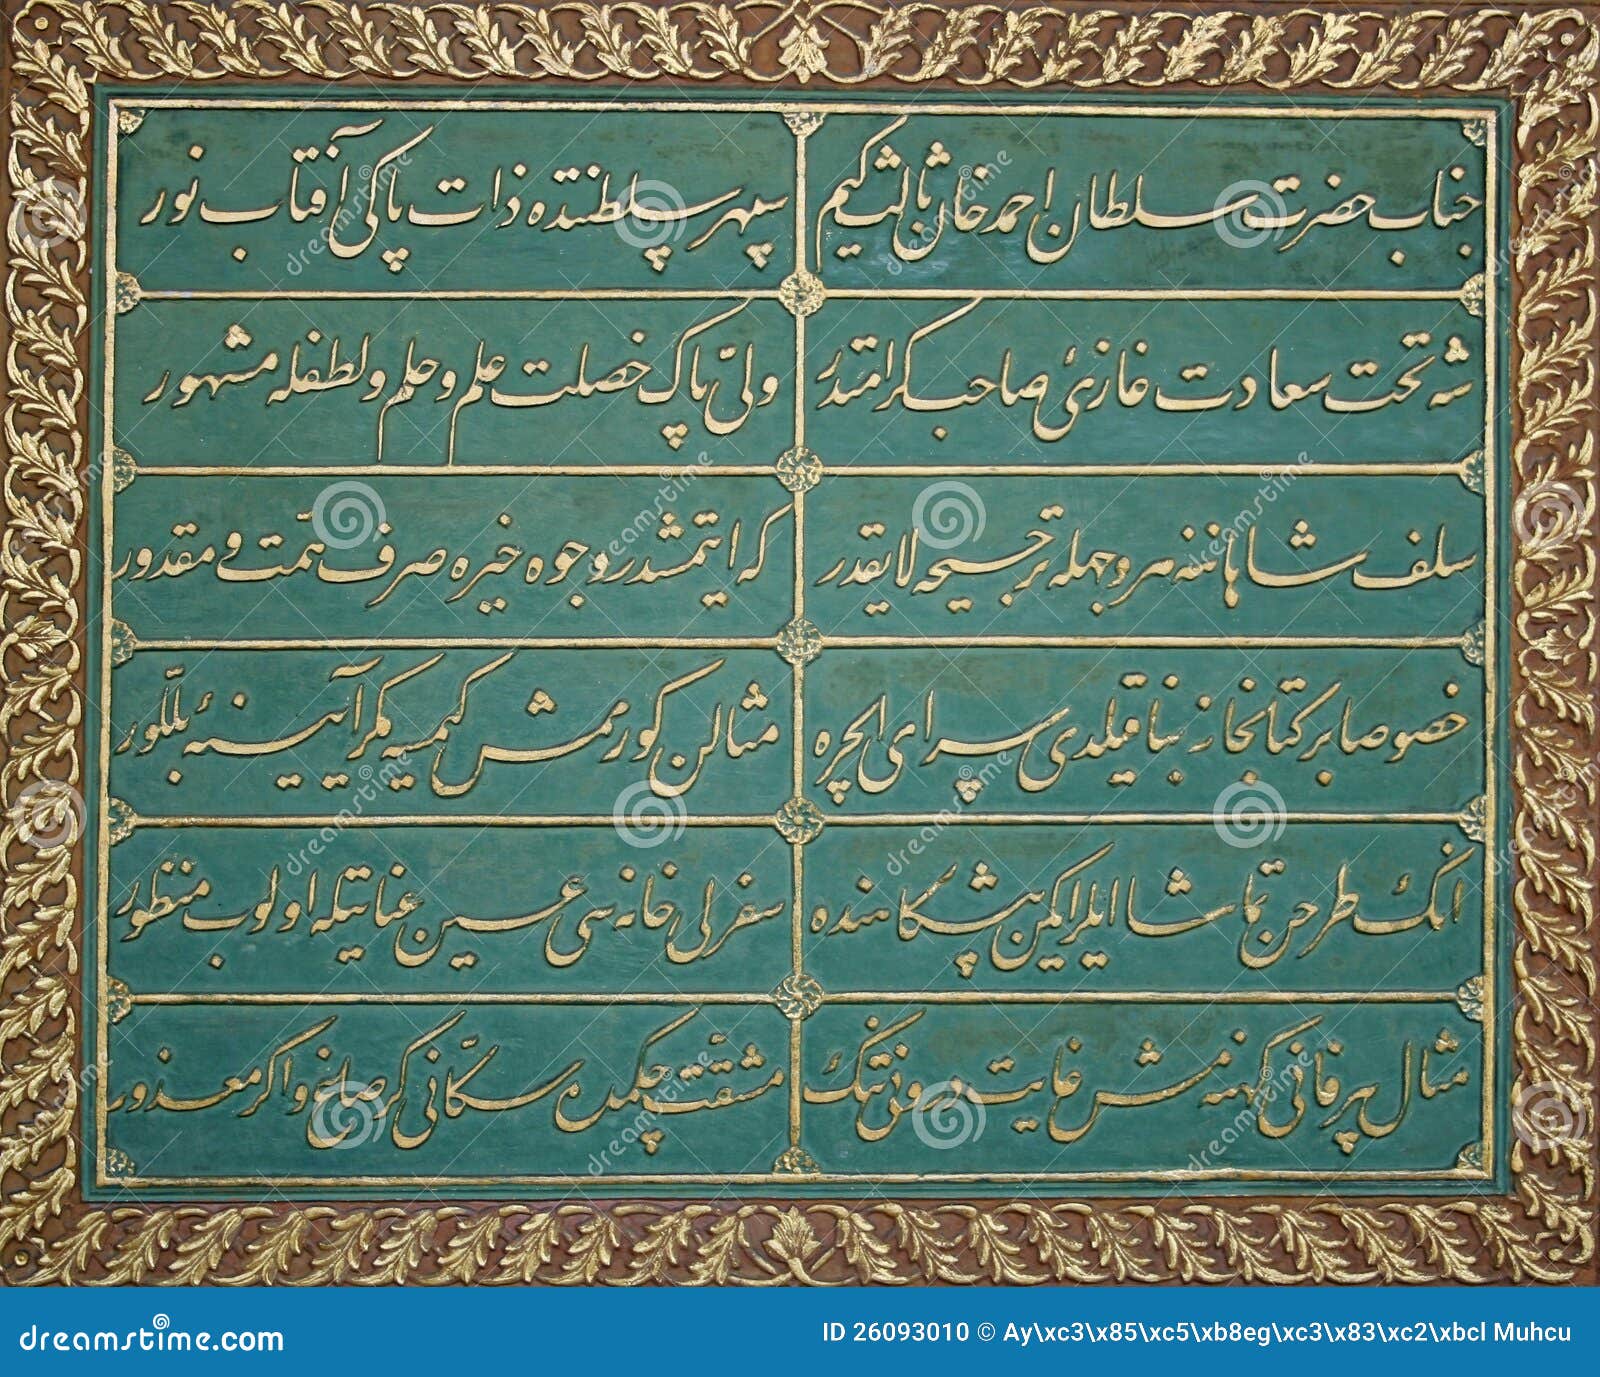 جناب حضرت سلطان احمد خان ثالث كيم
سپهر سلطنتده ذات پاكى آفتاب نور
شه تخت سعادت غازئ صاحب كرامتدر
ولىّ پاك خصلت علم و حلم و لطفله مشهور
سلف شاهاننه هر وجهله ترجيحه لايقدر
كه ايتمشدر وجوه خيره صرف همت و مقدور
خصوصا بر كتابخانه بنا قيلدى سراى ايچره
مثالن كورممش كيمسه مكر آيينهٔ بللور
انك طرحن تماشا ايلر ايكن پيشكاهنده
سفرلى خانه سى عين عنايتله اولوب منظور
مثال پير فانى كهنه غايت درونى تنك
مشقت چكمده سكانى كر صالح و اكر معذور
dreamstime.com
ID 26093010 © Ay\xc3\x85\xc5\xb8eg\xc3\x83\xc2\xbcl Muhcu